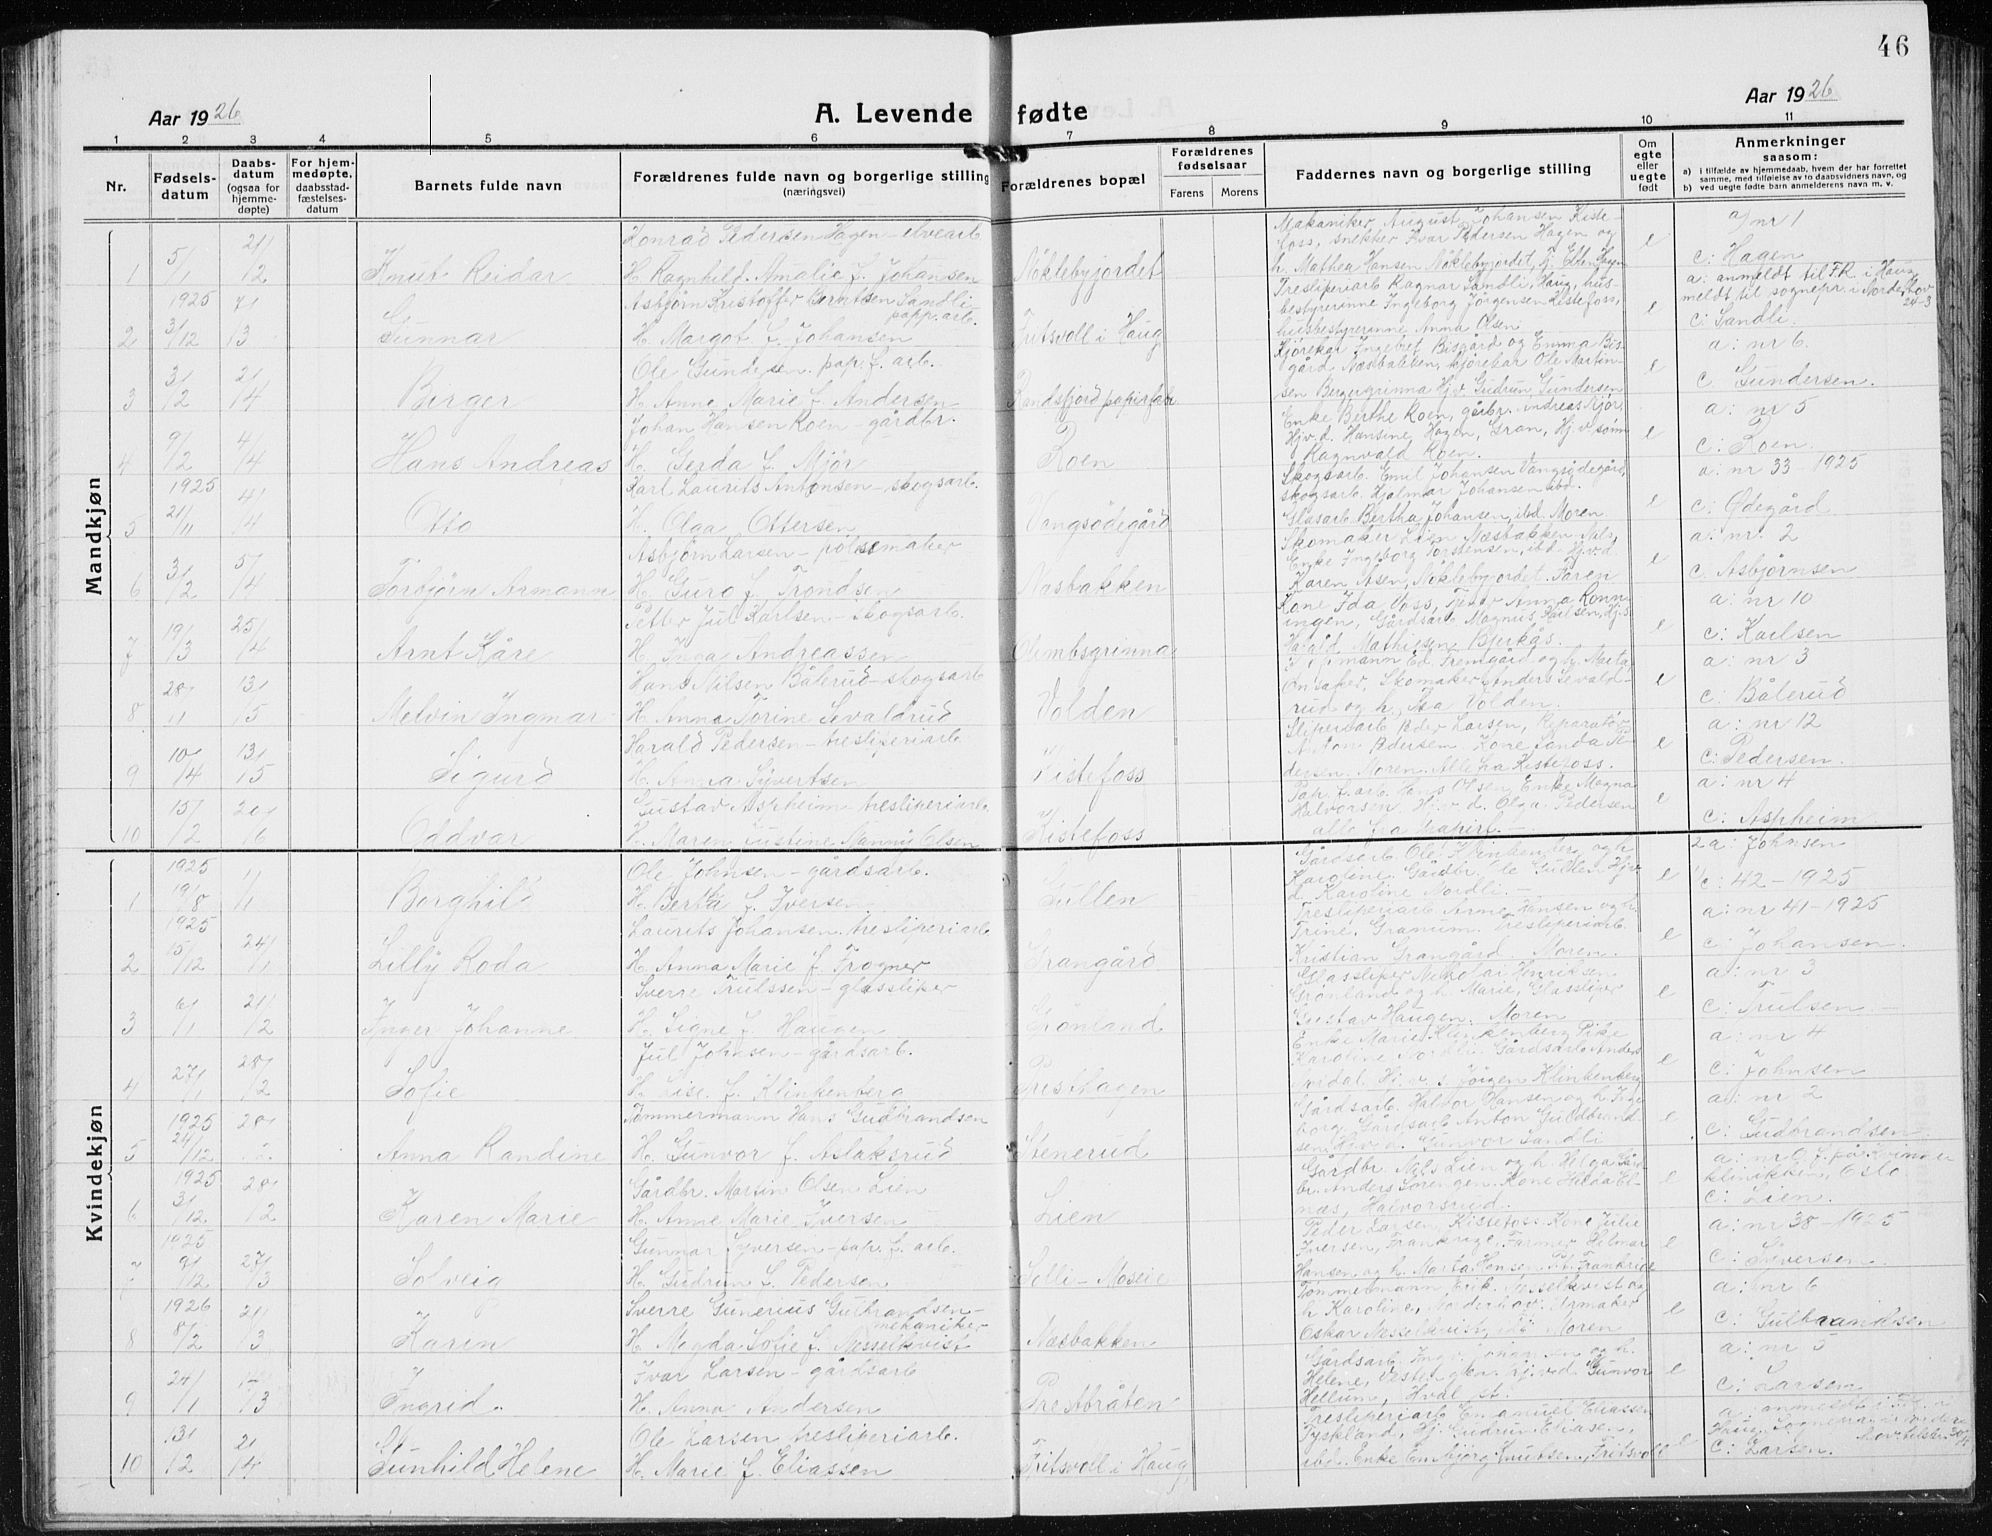 46
Aar 1926
A. Levende fødte
Aar 1926
1 2 3 4 5 6 7 8 9 10 11
Nr.
Fødsels-
datum
Daabs-
datum
(ogsaa for
hjemme-
døpte)
For hjem-
medøpte,
daabsstad-
fæstelses-
datum
Barnets fulde navn
Forældrenes fulde navn og borgerlige stilling
(næringsvei)
Forældrenes bopæl
Forældrenes
fødselsaar
Farens Morens
Faddernes navn og borgerlige stilling
Om
egte
eller
uegte
født
Anmerkninger
saasom:
a) i tilfælde av hjemmedaab, hvem der har forrettet
samme, med tilføielse av to daabsvidners navn, og
b) ved uegte fødte barn anmelderens navn m. v.
Mandkjøn
1 5/1 21/2 Knut Reidar
Konrad Pedersen Hagen - elvearb.
H. Ragnhild Amalie f. Johansen
Nöklebyjordet
Makaniker August Johansen Kiste-
foss, snekker Ivar Pedersen Hagen og
h. Mathea Hansen Nöklebyjordet,
e
a/ nr 1
c: Hagen
2 1925 3/12 7/3 Gunnar
Asbjörn Kristoffer Berntsen Sandli
papp.arb.
H. Margot f. Johansen
Fritsvoll i Haug
Tresliperiarb Ragnar Sandli, Haug, hus-
bestyrerinne Ingeborg Jörgensen Kistefoss,
husbestyrerinne Anna Olsen
e
a: anmeldt til F.R. i Haug
meldt til sognepr. i Norderhov
24-3
c: Sandli.
3 3/2 2/4 Birger
Ole Gundersen pap. f. arb.
H. Anna Marie f. Andersen
Randsfjord papirfabr
Kjörekar Ingebret Bisgård og Emma Bis-
gård Næsbakken, kjörekar Ole Martin-
sen Bergergrinna Hjv Gudrun Gundersen
e
a: nr 6.
c. Gundersen.
4 9/2 4/4 Hans Andreas
Johan Hansen Roen - gårdbr.
H. Gerda f. Mjör
Roen
Enke Berthe Roen, gårbr. Andreas Mjör,
Hjv.d. Hansine Hagen, Gran, Hj.v sönn
Ragnvald Roen.
e
a: nr 5
c: Roen.
5 1925 21/11 4/4 Otto
Karl Laurits Antonsen - skogsarb.
H. Olga Ottersen
Vangsödegård
Skogsarb. Emil Johansen Vangsödegård,
skogsarb. Hjalmar Johansen ibd.
Glasarb. Bertha Johansen, ibd. Moren.
e
a: nr 33 - 1925
c: Ödegård
6 3/2 5/4 Torbjörn Armann
Asbjörn Larsen - pölsemaker
H. Guro f. Trondsen
Næsbakken
Skomaker Lien Næsbakken Nils,
Enke Ingeborg Torstensen, ibd. Hjv.d.
Karen Åsen, Nöklebyjordet. Faren
e
a: nr. 2
c. Asbjörnsen
7 19/3 25/4 Arnt Kåre
Petter Jul Karlsen - skogsarb.
H. Inga Andreassen
Olimbsgrinna
Kone Ida Voss, Anna Ronn-
ingen, Gårdsarb. Magnus Karlsen, Hj.s
Harald Mathisen Bjerkås.
e
a: nr 10
c: Karlsen
8 28/11 13/5 Melvin Ingmar
Hans Nilsen Bålerud - skogsarb
H. Anna Torine Sevaldrud
Volden
Ed. Fremgård og h. Marta
Onsaker, Skomaker Anders Sevald-
rud og h. Åsa Volden.
e
a: nr 3
c: Bålerud
9 10/4 13/5 Sigurd
Harald Pedersen - tresliperiarb
H. Anna Syvertsen
Kistefoss
Sliperiarb Peder Larsen, Reparatör
Anton Pedersen. Kone Landa Pe-
dersen. Moren. Alle fra Kistefoss.
e
a: nr 12
c: Pedersen.
10 15/2 20/6 Oddvar
Gustav Aspheim - tresliperiarb.
H. Maren Justine Nanny Olsen
Kistefoss
Pap. f. arb. Hans Olsen, Enke Magna
Halvorsen Hj.v d. Olga Pedersen
alle fra
e
a: nr 4
c: Aspheim.
Kvindekjøn
1 1925 19/8 1/1 Borghild
Ole Johnsen - gårdsarb.
H. Berta f. Iversen
Gullen
Gårdsarb. Ole Klinkenberg og h
Karoline. Gårdbr. Ole Gullen Hjv
d. Karoline Nordli. -
e
2a: Johnsen
1/c: 42 - 1925
2 1925 15/12 24/1 Lilly Roda
Laurits Johansen tresliperiarb
H. Anna Marie f. Frogner
Grangård
Tresliperiarb Arne Hansen og h.
Trine. Granum. Tresliperiarb.
Kristian Grangård. Moren.
e
a: nr 41 - 1925
c: Johansen.
3 6/1 21/2 Inger Johanne
Sverre Trulssen - glassliper
H. Signe f. Haugen
Grönland
Glassliper Nikolai Henriksen
Grönland og h. Marie, Glassliper
Gustav Haugen. Moren
e
a: nr 3
c: Trulsen. -
4 27/1 28/2 Sofie
Jul Johnsen - gårdsarb.
H. Lise f. Klinkenberg
Presthagen
Enke Marie Klinkenberg Pike
Karoline Nordli. Gårdsarb. Anders
Hj. v. s Jörgen Klinkenberg
e
a: nr 4
c: Johnsen
5 1925 24/12 28/2 Anna Randine
Tömmermann Hans Gudbrandsen
H. Gunvor f. Aslaksrud
Stenerud
Gårdsarb. Halvor Hansen og h Inge-
borg. Gårdsarb Anton Guldbrand-
sen. Gunvor Sandli
e
a: nr 2
c: Gudbrandsen.
6 1925 3/12 28/2 Karen Marie
Gårdbr. Martin Olsen Lien
H. Anne Marie Iversen
Lien
Gårdbr. Nils Lien og h. Helga Gård-
br. Anders Sörengen. Kone Hilda El-
næs, Halvorsrud.
e
a: nr 9 f. på kvinne
klinikken, Oslo
c: Lien.
7 1925 9/12 27/3 Solveig
Gunnar Syversen - pap. f. arb.
H. Gudrun f. Pedersen
Selli-Moseie
Peder Larsen, Kistefoss. Kone Julie
Iversen, Frankrige. Farmer Hilmar
Hansen og h. Marta Hansen. Frankrige
e
a: nr 38 - 1925
c: Syversen.
8 1926 8/2 21/3 Karin
Sverre Gunerius Gulbrandsen -
mekaniker
H. Magda Sofie f. Nesselkvist
Næsbakken
Tömmermann Erik Nesselkvist og
h Karoline, Norderhov. Urmaker
Oskar Nesselkvist, ibd. Moren
e
a: nr 6
c: Gulbrandsen
9 24/1 /3 Ingrid.
Ivar Larsen - gårdsarb
H. Anna Andersen
Prestbråten
Gårdsarb. og h.
Helene, Hj.v.d. Gunvor
Hellum, Hval st.
e
a: nr 5
c: Larsen
10 13/2 2/4 Gunhild Helene
Ole Larsen tresliperiarb.
H. Marie f. Eliassen
Fritsvoll i Haug
Tresliperiarb Emanuel Eliassen
Tyskland, Hj. Gudrun Eliasen,
ibd. Enke Embjörg Knutsen, Fritsvoll
e
a: anmeldt i F.r. i
Haug. Sognepr. i Norder-
hov tilskr. 30/4
c: Larsen.